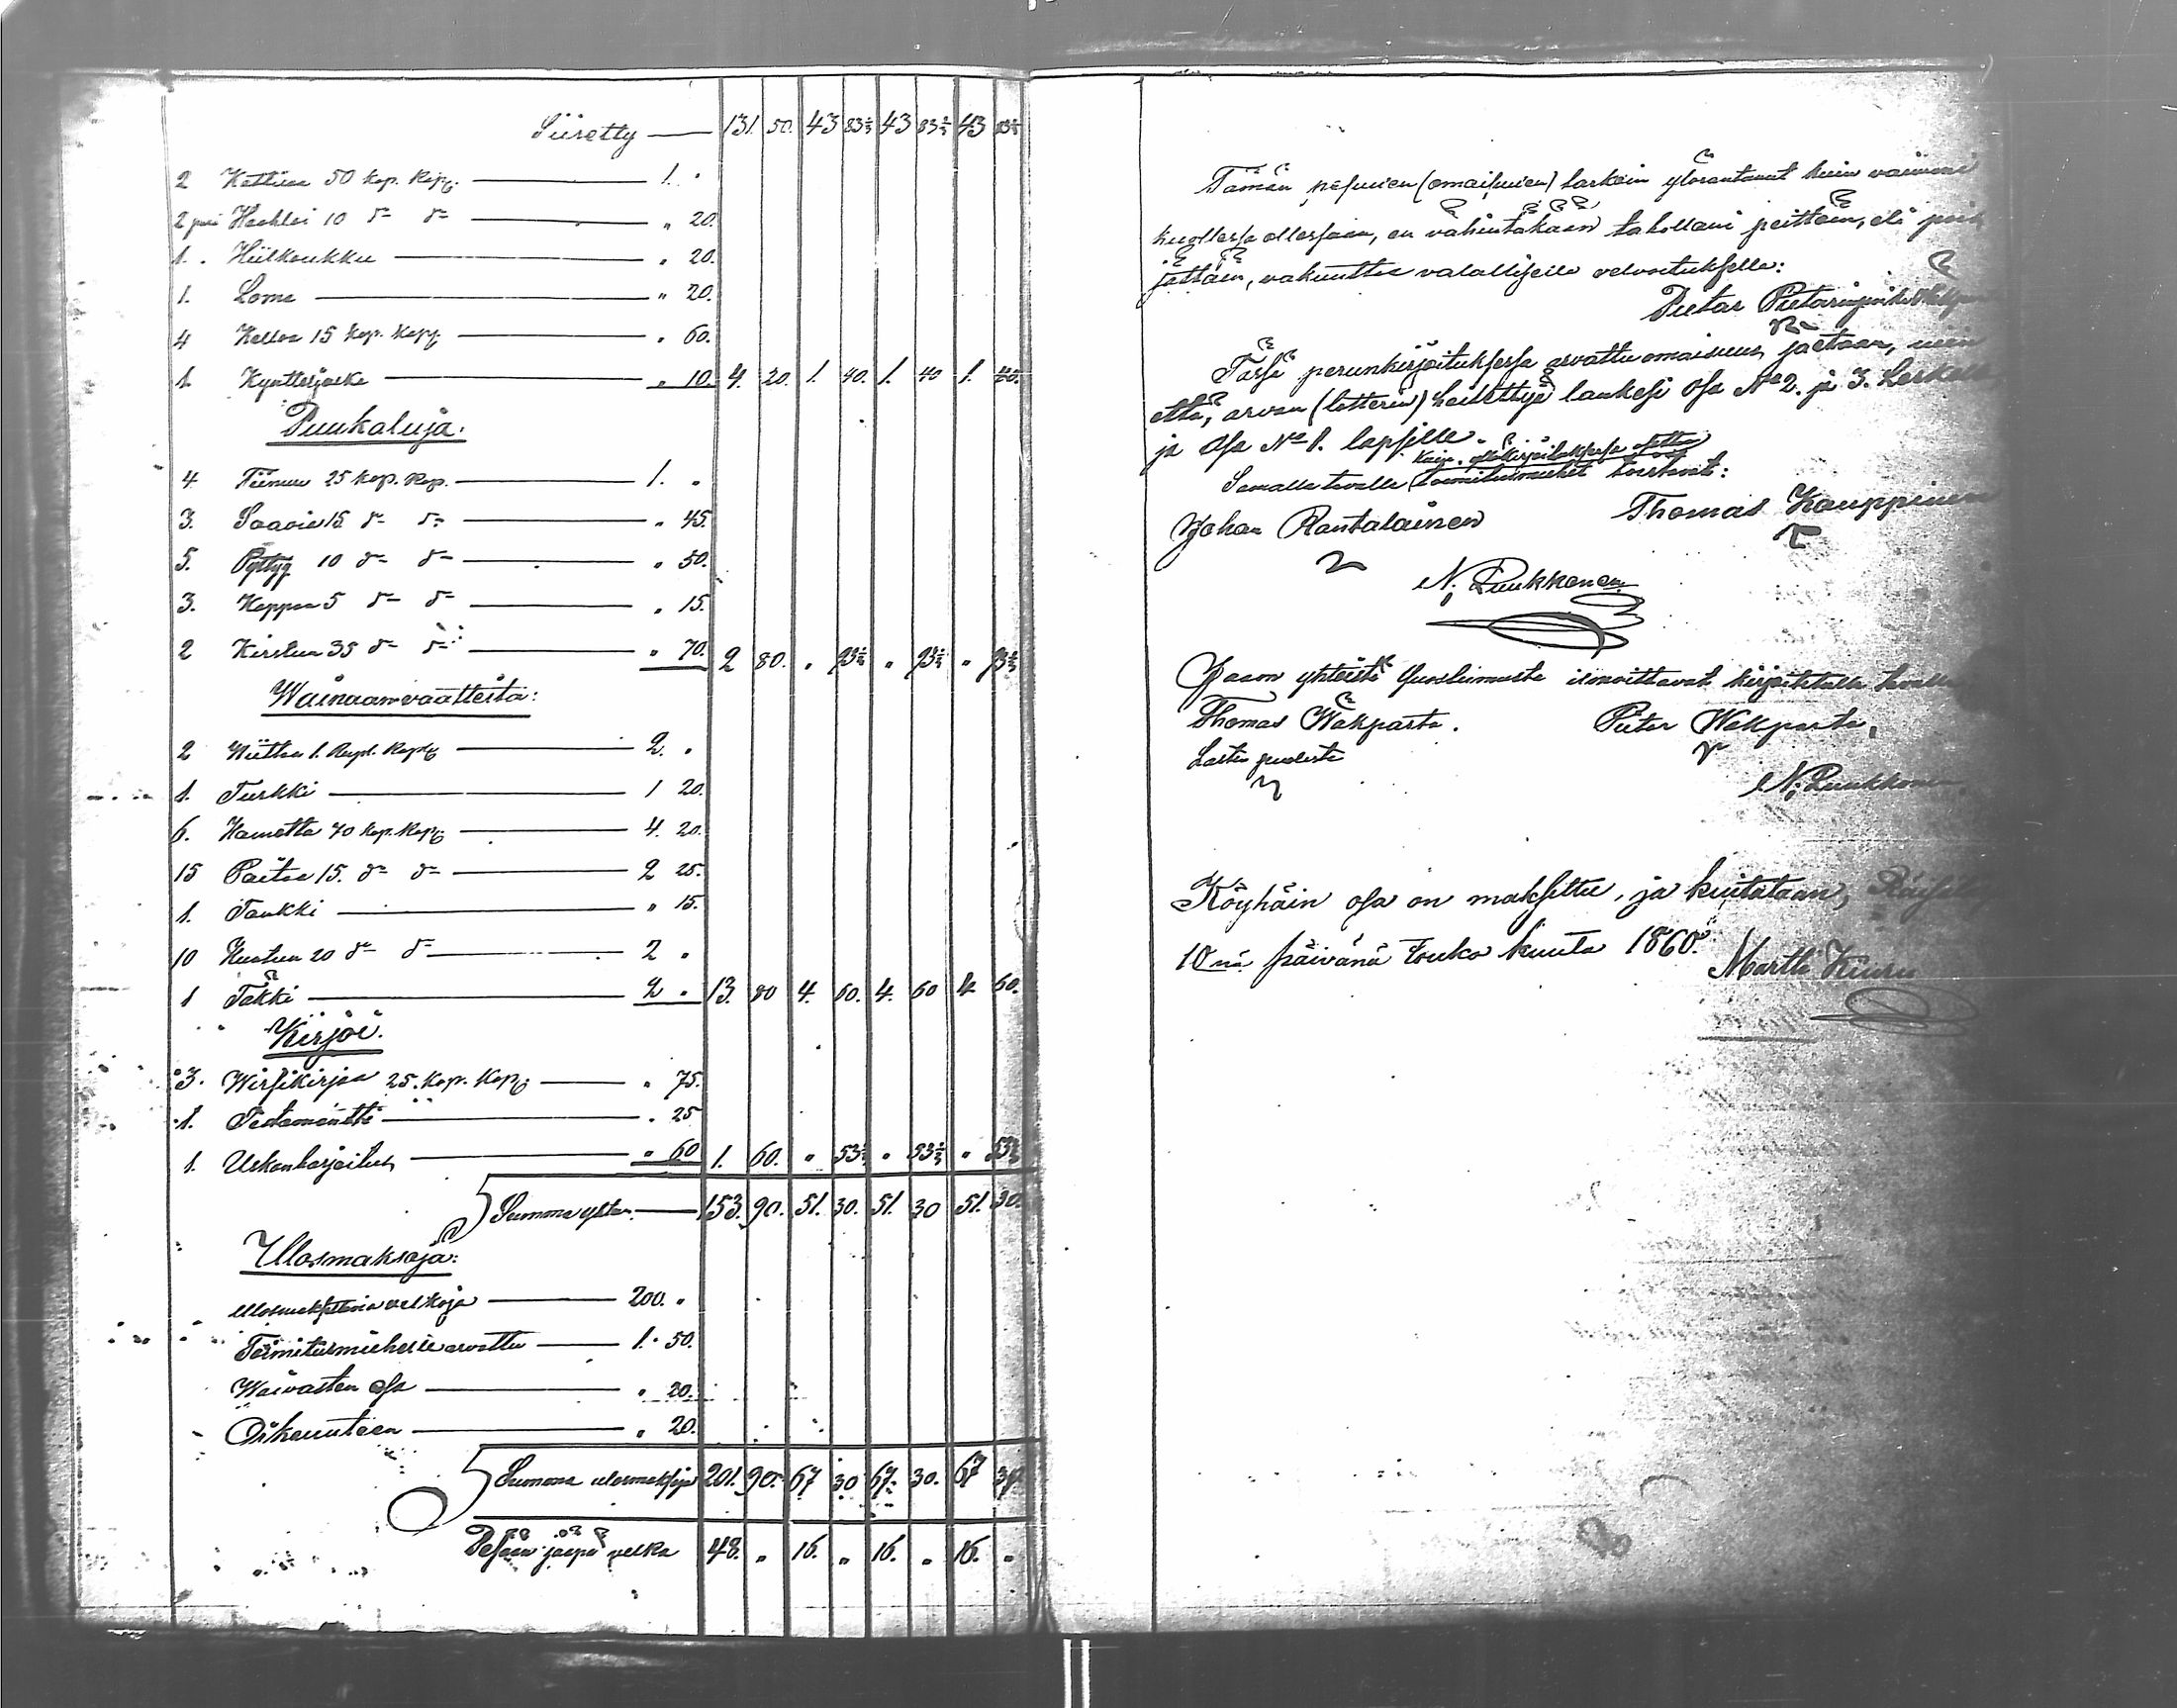 Siiretty — 131. 50. 43 83⅓ 43 83⅓ 43 83⅓
2 Kattilaa 50 kop. kapp. — 1. "
2 pari Haahloi 10 d:o d:o — " 20.
1. Hiilkoukku — " 20.
1. Loma — " 20.
4 Kelloa 15 kop. kapp. — " 60.
1. Kynttiljalka — " 10. 4. 20. 1. 40. 1. 40 1. 40.
Puukaluja.
4 Tiinua 25 kop. kap. — 1. "
3. Saavia 15 d:o d:o — " 45.
5. Pyttyä 10 d:o d:o — " 50.
3. Kappaa 5 d:o d:o — " 15.
2 Kirstua 35 d:o d:o — " 70. 2 80. " 93⅓ " 93⅓ " 93⅓
Wainaanvaatteita:
2 Wiittaa 1. Rupl. kapp. — 2. "
1. Turkki — 1 20.
6. Hametta 70 kop. kapp. — 4. 20.
15 Paitaa 15. d:o d:o — 2 25.
1. Tankki — " 15.
10 Huntua 20 d:o d:o — 2 "
1 Täkki — 2 " 13. 80 4. 60. 4. 60 4. 60.
Kirjoi.
3. Wirsikirjaa 25. kop. kapp. — " 75.
1. Testamentti — " 25
1. Uskonharjoitus — " 60 1. 60. " 53⅓ " 53⅓ " 53⅓
Summa yhten. — 153. 90. 51. 30. 51. 30 51. 30.
Ulosmaksoja:
Ulosmaksettavia velkoja — 200. "
Toimitusmiehille arvattu — 1. 50.
Waivasten osa — " 20.
Oikeuuteen — " 20.
Summa ulosmaksoja 201. 90. 67 30 67. 30. 67 30
Pesään jääpi velka 48. " 16. " 16. " 16. "
Tämän pesuuen (omaisuuen) tarkoin ylösantanut kuin vaimoni
kuollessa ollessaan, en vähintäkään tahollani peittäin, eli pois
jättäin, vakuuttaa valallisella velvoituksella:
Pietar Pietarinpoika
Tässä perunkirjoituksessa arvattu omaisuus jaetaan, niin
että, arvan (lotterin) heitettyä lankesi Osa No 2. ja 3. Leskelle
ja Osa No 1. lapsille.
Kaiu. ylöskirjoituksessa otettu
Samalla tavalla toimitusmiehet toistavat:
Johan Rantalainen Thomas Kauppinen
N. Puukkonen
Jaon yhteistä suostumusta ilmoittavat kirjoitetulla tavalla
Thomas Wäkparta. Pietar Wäkparta,
Lasten puolesta
N. Puukkonen
Köyhäin osa on maksettu, ja kuitataan,
10nä päivänä Touko kuuta 1860.
Martti Kiuru